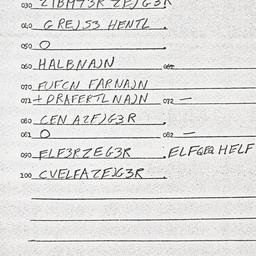 030 ZIBM73R ZEJG3R
040 GREJS3 HENTL.
050 O
060 HALBNAJN 062
070 FUFCN FARNAJN
071 + DRAFERTL NAJN 072 —
080 CEN AZFJG3R
081 O 082 —
090 FLF3RZEG3R. ELFGEQ HELF
100 CVELFAZEJG3R.